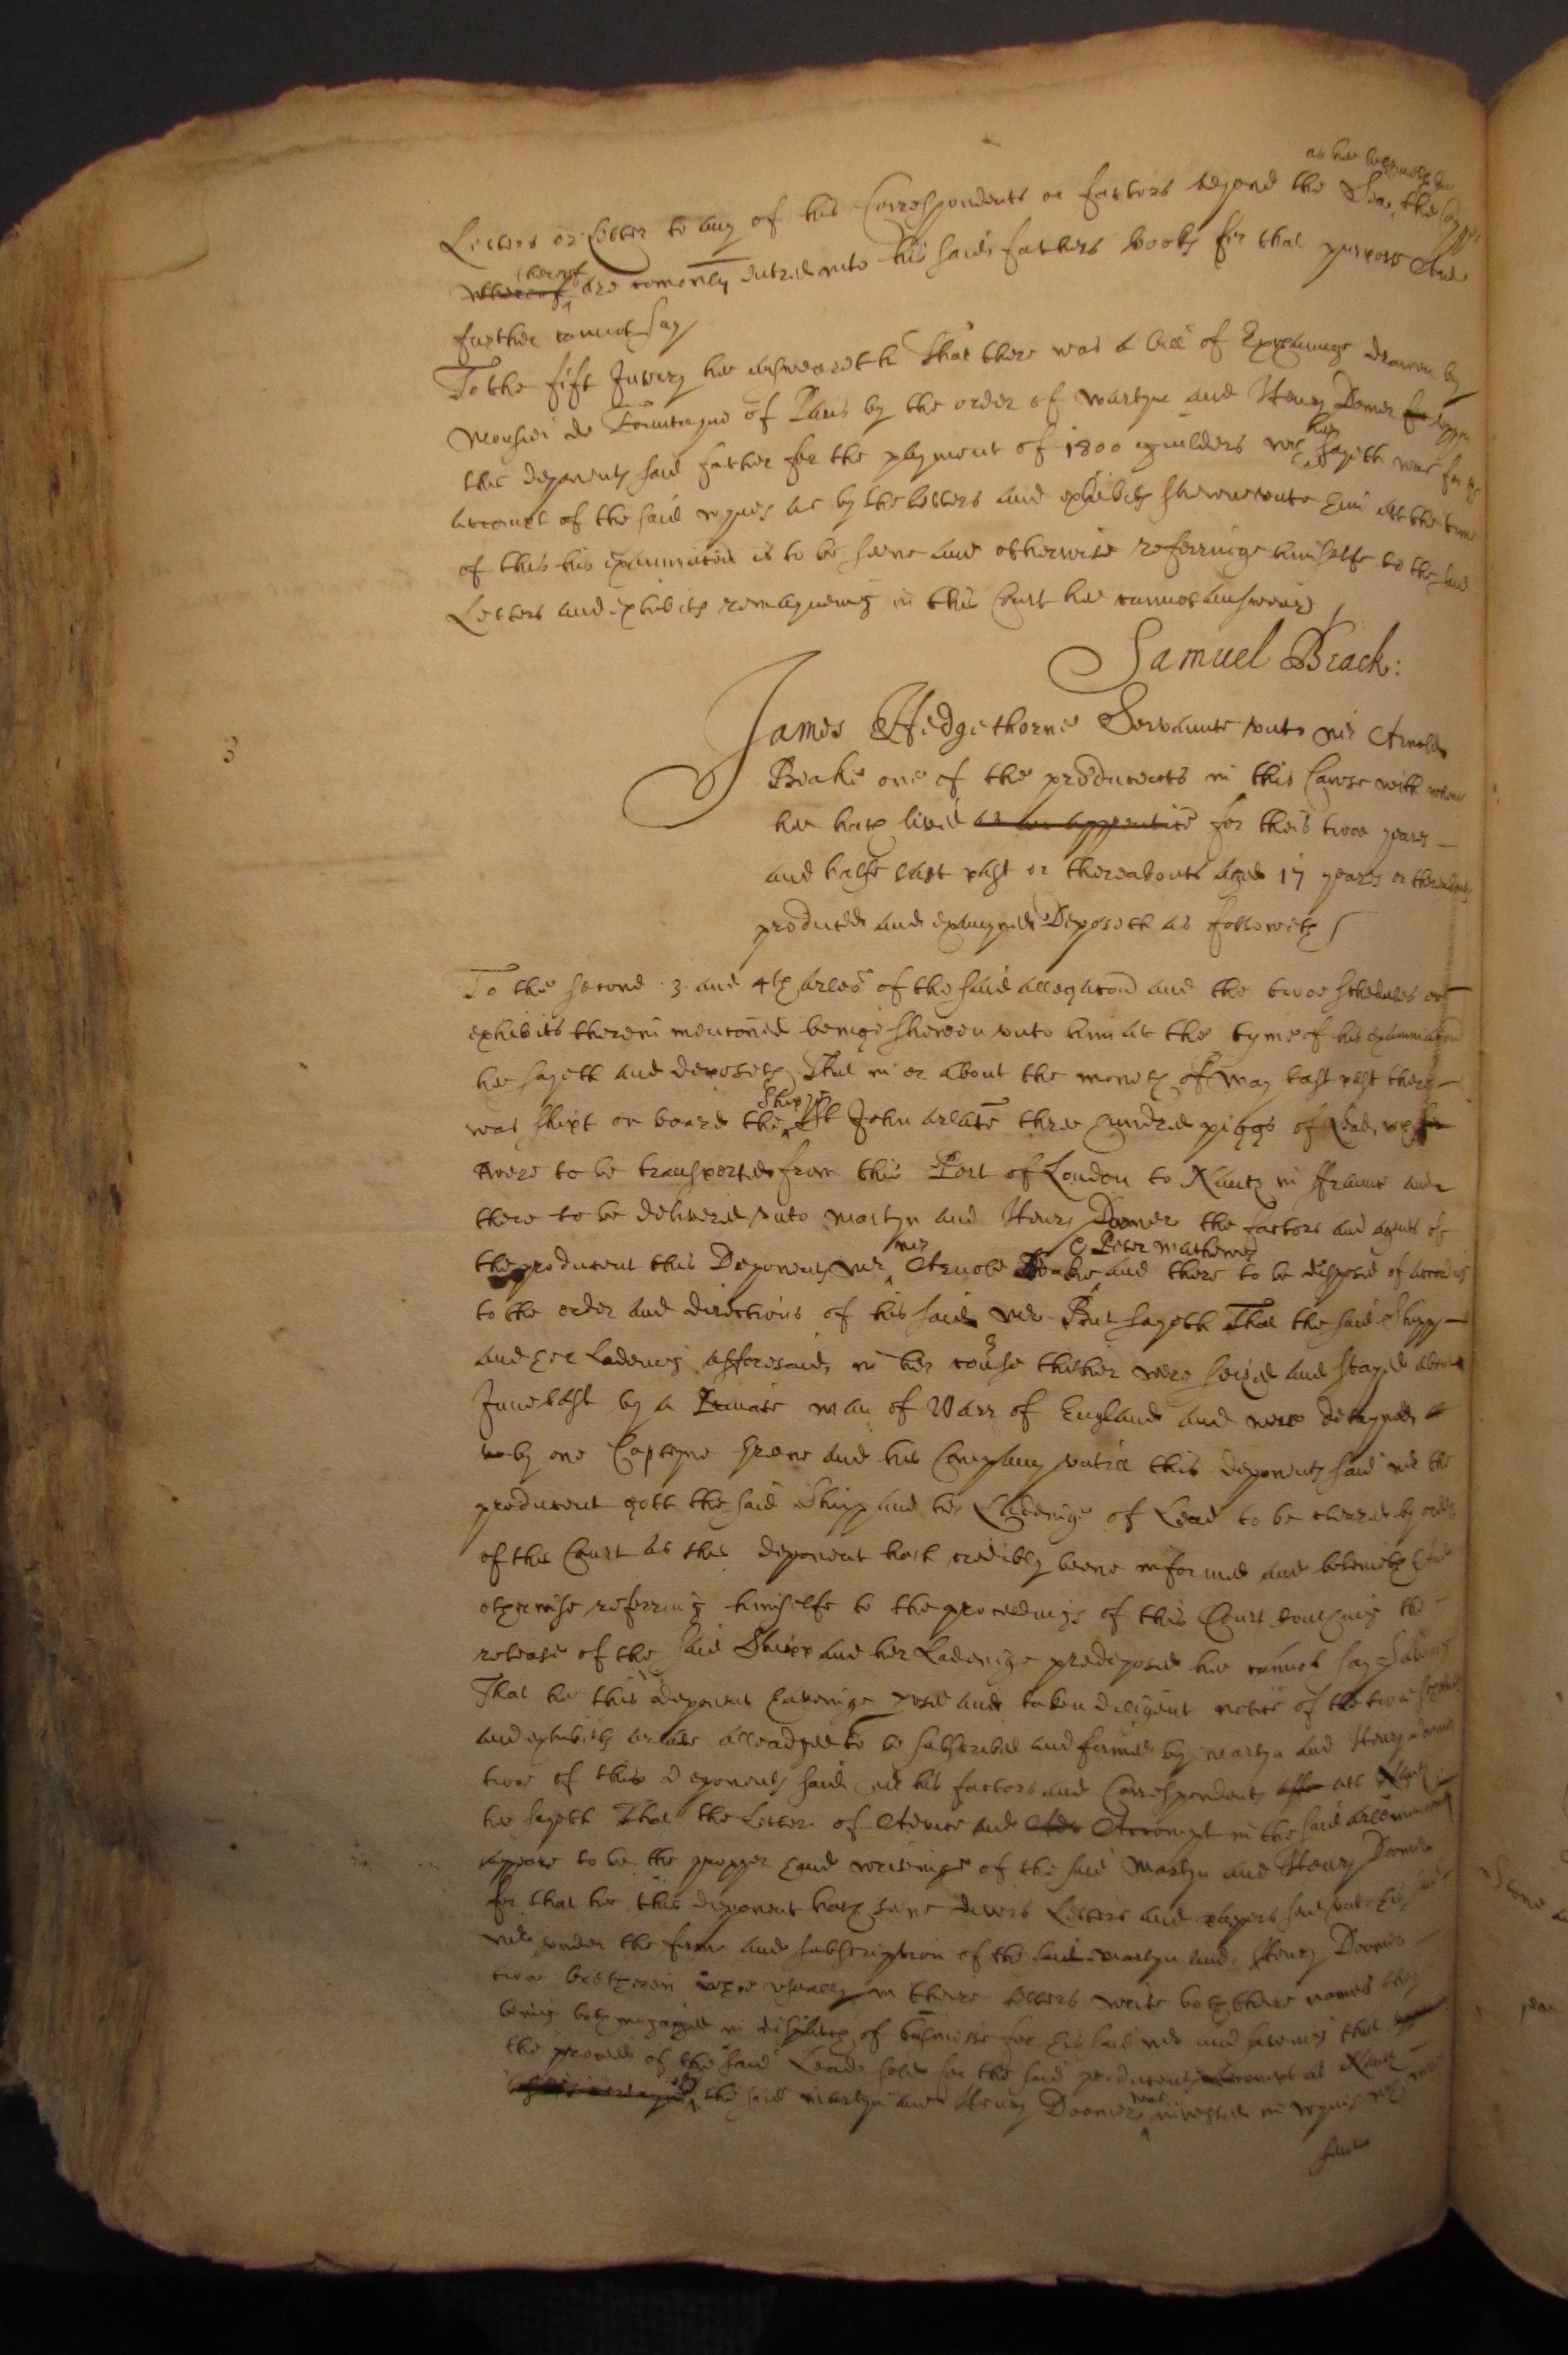 as hee beleeveth
Letters or Letter to any of his Correspondents or factors beyond the Seas, the
whereof thereof are comonly entred into his said fathers books for that purpose And
further cannot say
To the fift Interry hee answeareth That there was a bill of Exchange drawen by
Monsier de of Paris by the order of Martyn and Henry Domer
this deponents said father for the payment of 1800 guilders wch hee sayeth was for the
accompt of the said wynes as by the letters and exhibits shewne unto him att the time
of this his examination is to be seene and otherwise referringe himselfe to the said
Letters and exhibits remayneing in this Court hee cannot answeare /
Samuel Beack:
3
James Hedgethorne Servante unto mr Arnold
Beake one of the producents in this Cause with whom
hee hath lived as an apprentice for theis twoe yeares
and halfe last past or thereabouts aged 17 yeares or thereabouts
produced and examyned Deposeth as followeth /
To the second 3 and 4th arles of the said allegation and the twoe schedules or
exhibits therein mentoned beinge shewen unto him at the tyme of his examination
hee sayeth and deposeth That in or about the moneth of May last past there
was shipt on board the Shipp St John arlate three hundred piggs of Lead, wch
were to be transported from this Port of London to Nantz in ffrance and
there to be delivered unto Martyn and Henry Doomer the factors and agents of
the producent this Deponents mr mr Arnold Beake & Peter Mathewes and there to be disposed of according
to the order and directions of his said mr But sayeth That the said Shipp
and her Ladeing afforesaid, in her course thither were seized and stayed about
June last by a Private man of Warr of England and were detayned
by one Captayne Greene and his Company untill this deponents said mr the
producent gott the said Shipp and her Ladeinge of Lead to be cleared by order
of this Court as this deponent hath credibly beene informed and beleeveth And
otherwise referring himselfe to the proceedings of this Court touching the
release of the said Shipp and her Ladeinge predeposed hee cannot say Saveing
That he this deponent haveinge and taken diligent notice of the twoe
and exhibits arlate alleadged to be subscribed and firmed by Martyn and Henry Doomer
twoe of this deponents said mr his factors and Correspondents att Nantz
hee sayeth That the Letter of Advice and Accompt in the said
appeare to be the propper hand writeinge of the said Martyn and Henry Doomer
for that hee this deponent hath seene divers Letters and papers sent unto his said
mr under the firme and subscription of the said Martyn and Henry Doomer
twoe bretheren whoe usually in theire letters write both there names they
being both engaged in dispatch of businesse for his said mr and saveing that
the proceed of the said Lead sold for the said producents Accompt at Nantz
by the said Martyn and Henry Doomer was invested in wynes wch
said